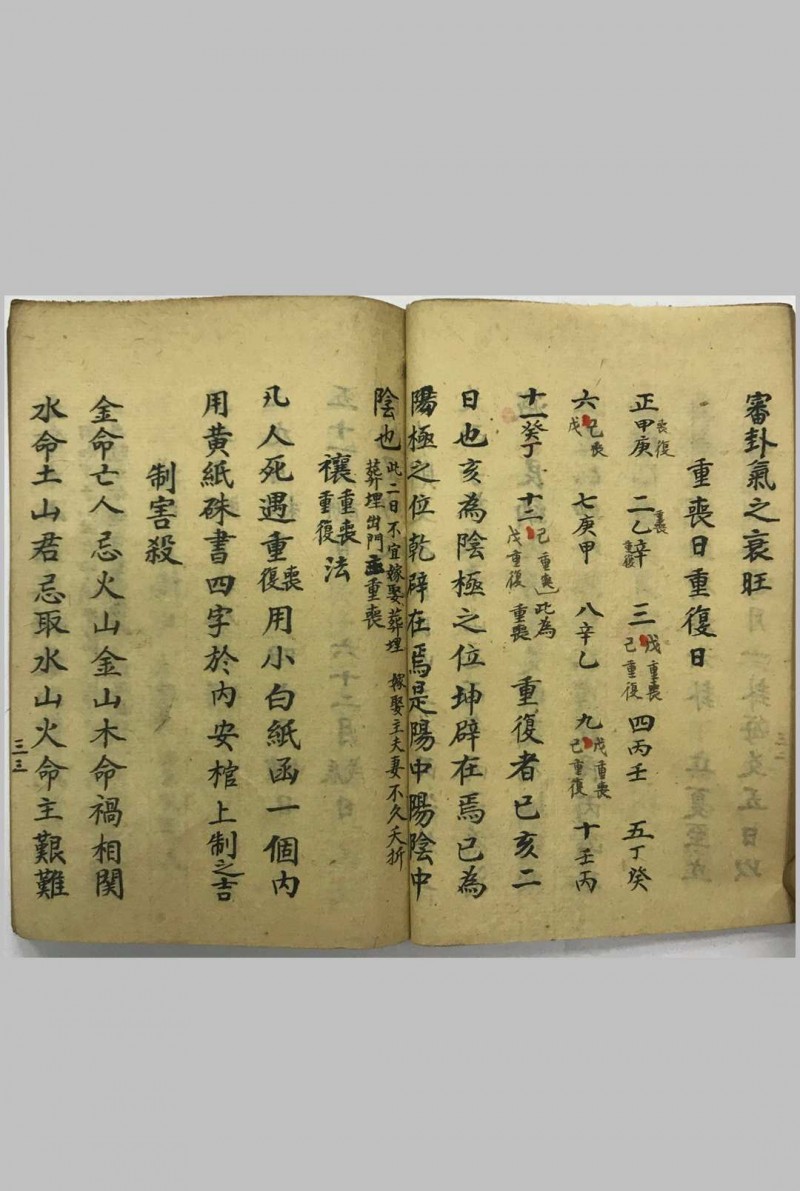 審卦氣之衰旺
重喪日重復日
正甲庚喪復 二乙辛重喪重復 三戊重喪己重復 四丙壬 五丁癸
六己喪戊 七庚甲 八辛乙 九戊重喪己重復 十壬丙
十一癸丁 十二己重喪戊重復 此為重喪 重復者巳亥二
日也亥為陰極之位坤辟在焉巳為
陽極之位乾辟在焉是陽中陽陰中
陰也此二日不宜嫁娶葬埋 嫁娶主夫妻不久夭折
葬埋出門主重喪
禳重喪重復法
凡人死遇重喪復用小白紙函一個內
用黃紙硃書四字於內安棺上制之吉
制害殺
金命亡人忌火山金山木命禍相関
水命土山君忌取水山火命主艱難
三三